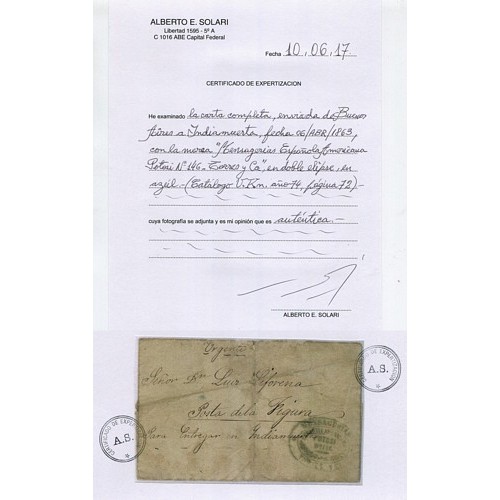 ALBERTO E. SOLARI
Libertad 1595 - 5º A
C 1016 ABE Capital Federal
Fecha 10.06.17
CERTIFICADO DE EXPERTIZACION
He examinado la carta completa, enviada de Buenos
Aires a Indiamuerta, fecha 06/ABR/1863,
con la marca "Mensagerias Española Americana
Potosi Nº 146 - Torres y Ca", en doble elipse, en
azul - (Catálogo U.Kn. año 74, página 72) -
cuya fotografía se adjunta y es mi opinión que es auténtica. -
ALBERTO E. SOLARI
Urgente
Señor Dn Luis
Posta dela Figura
Para Entregar en Indiamuerta
CERTIFICADO DE EXPERTIZACION
A.S.
CERTIFICADO DE EXPERTIZACION
A.S.